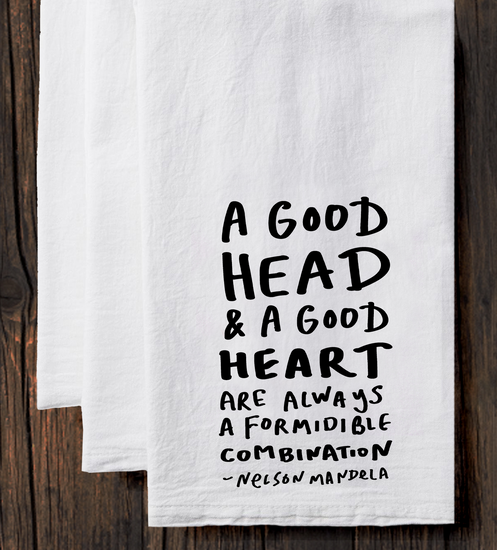 A GOOD
HEAD
& A GOOD
HEART
ARE ALWAYS
A FORMIDIBLE
COMBINATION
~NELSON MANDELA